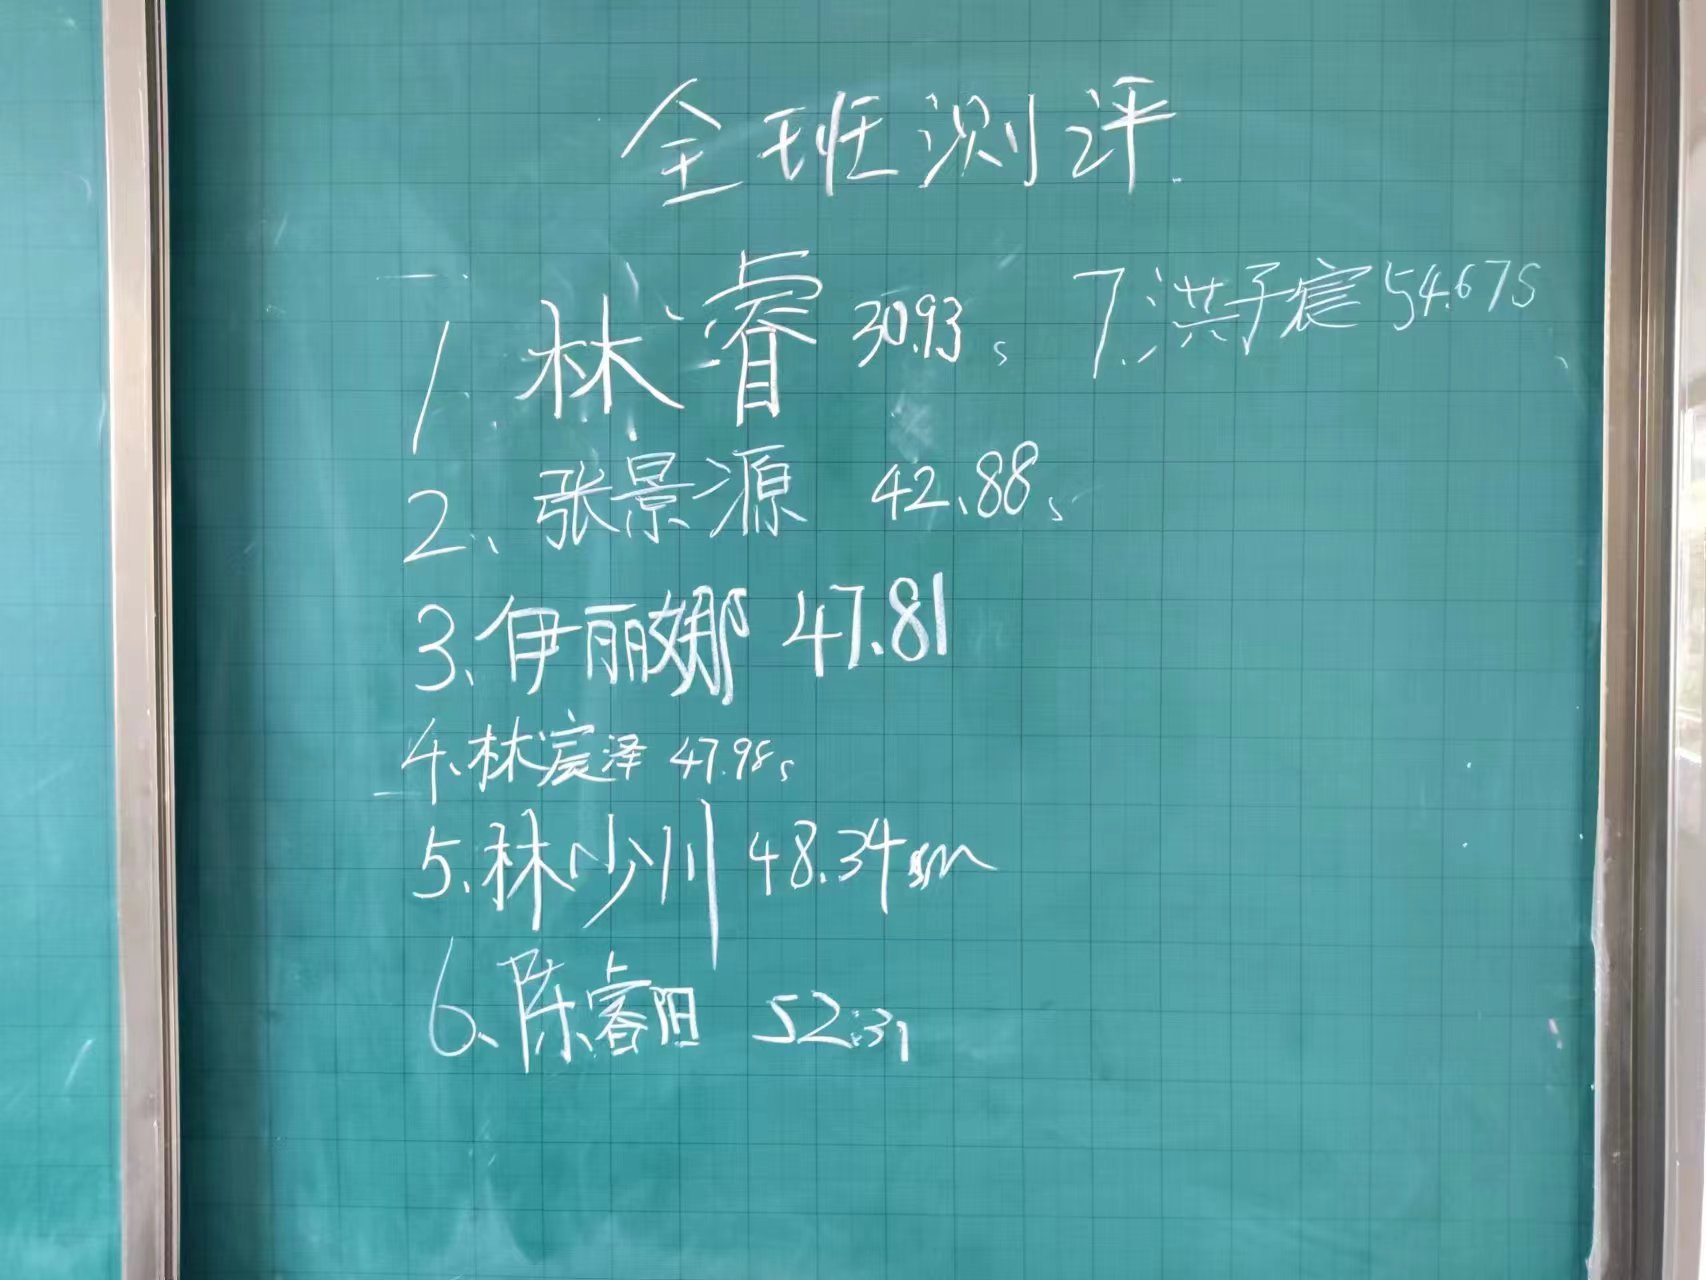 全班测评
1. 林睿 30.93s
2、张景源 42.88s
3、伊丽娜 47.81
4、林宸泽 47.98s
5.林少川 48.34sm
6、陈睿阳 52.31
7.洪子宸 54.67s